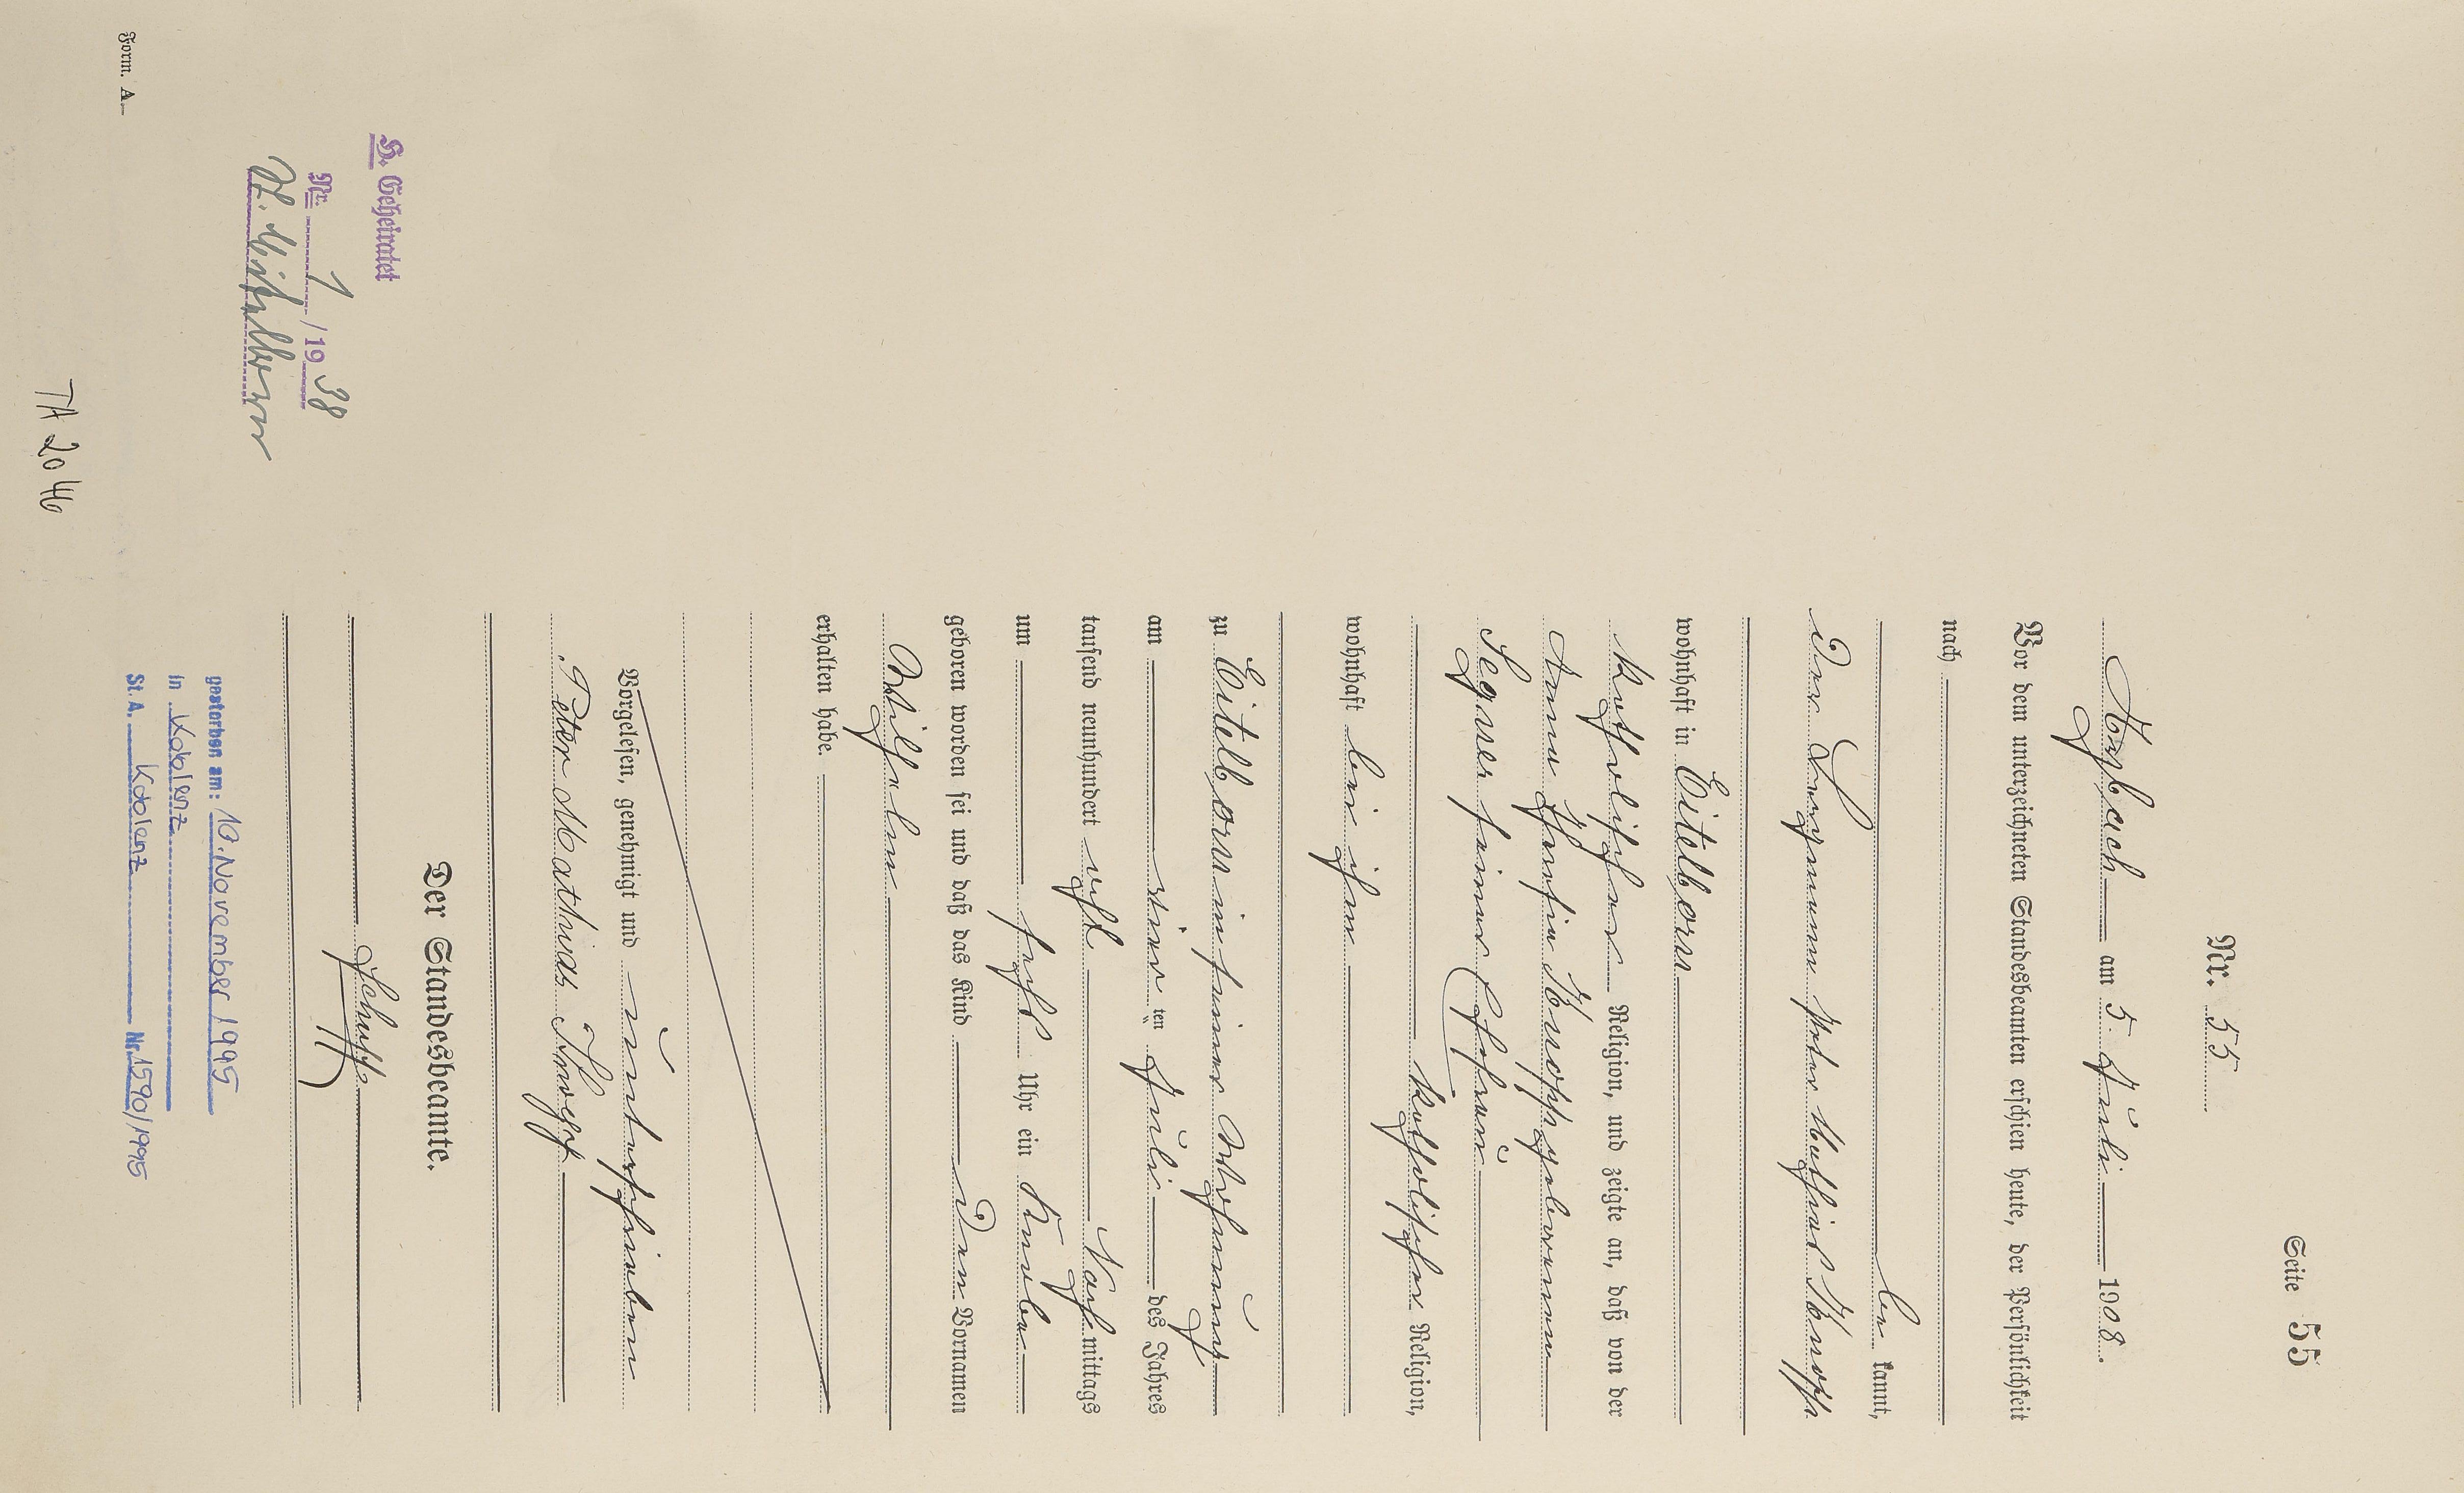 Seite 55
Nr. 55
Arzbach am 5. Juli 1908.
Vor dem unterzeichneten Standesbeamten erschien heute, der Persönlichkeit
nach
be kannt,
Der Bergmann Peter Mathias Knopp
wohnhaft in Eitelborn
katholischer Religion, und zeigte an, daß von der
Anna Knopp geborenen
seiner Ehefrau
katholischer Religion,
wohnhaft bei ihm
zu Eitelborn in seiner Wohnung
am vier ten Juli des Jahres
tausend neunhundert acht Nach mittags
um sechs Uhr ein Knabe
geboren worden sei und daß das Kind den Vornamen
Wilhelm
erhalten habe.
Vorgelesen, genehmigt und unterschrieben
Peter Mathias Knopp
Der Standesbeamte.
Geheiratet
Nr. 1/1938
St. A. Eitelborn
gestorben am: 10. November 1995
in Koblenz
St. A. Koblenz Nr. 1590/1995
Form. A.